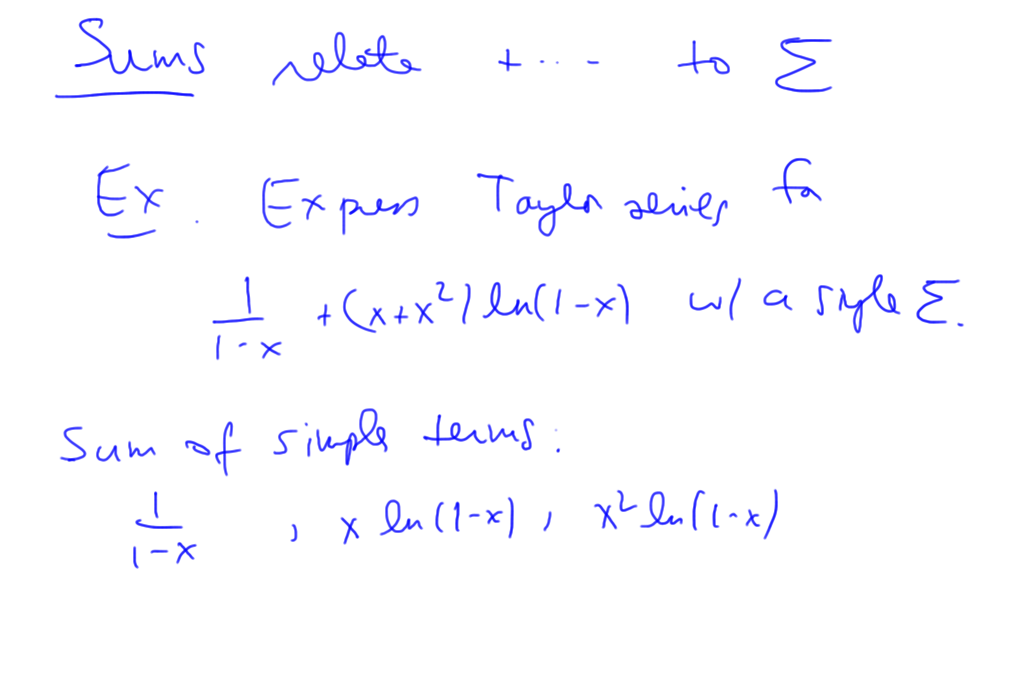 Sums relate + ... to Σ
Ex. Express Taylor series for
1/(1-x) + (x+x²) ln(1-x) w/ a single Σ.
Sum of simple terms:
1/(1-x) , x ln(1-x) , x² ln(1-x)